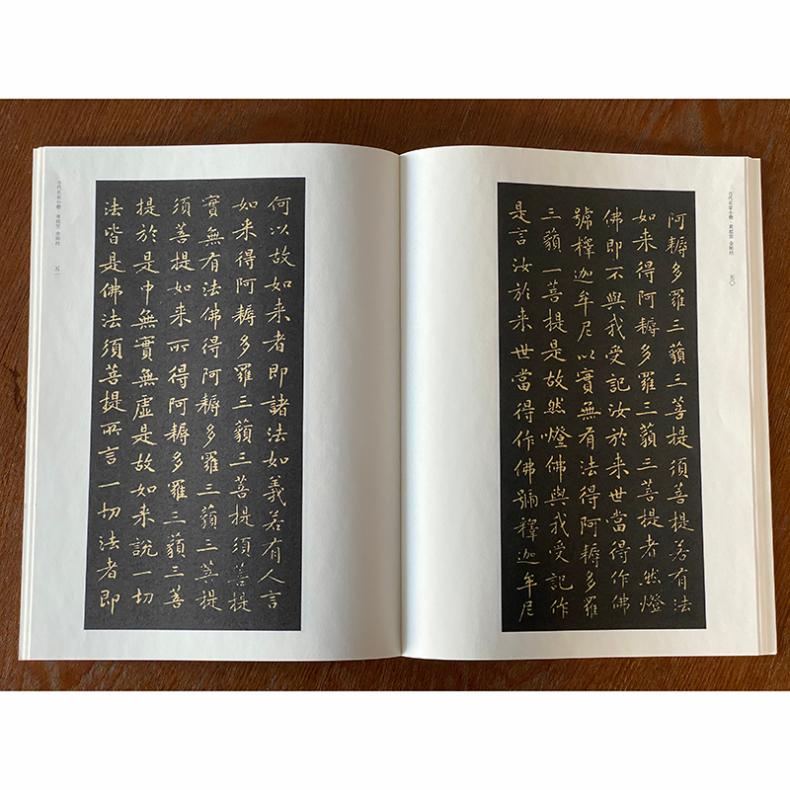 阿耨多羅三藐三菩提須菩提若有法
如来得阿耨多羅三藐三菩提者然燈
佛即不與我受記汝於来世當得作佛
號釋迦牟尼以實無有法得阿耨多羅
三藐三菩提是故然燈佛與我受記作
是言汝於来世當得作佛號釋迦牟尼
五〇
何以故如来者即諸法如義若有人言
如来得阿耨多羅三藐三菩提須菩提
實無有法佛得阿耨多羅三藐三菩提
須菩提如来所得阿耨多羅三藐三菩
提於是中無實無虛是故如来說一切
法皆是佛法須菩提所言一切法者即
五一